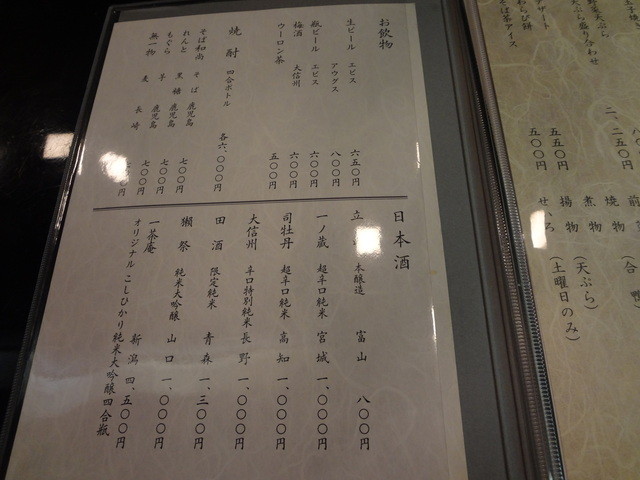 お飲物
生ビール エビス 六五〇円
アウグス 八〇〇円
瓶ビール エビス 六〇〇円
梅酒 大信州 六〇〇円
ウーロン茶 五〇〇円
焼酎 四合ボトル 各六、〇〇〇円
そば和尚 そば 鹿児島 七〇〇円
れんと 黒糖 鹿児島 七〇〇円
もぐら 芋 鹿児島 七〇〇円
無一物 麦 長崎 〇〇円
日本酒
立 本醸造 富山 八〇〇円
一ノ蔵 超辛口純米 宮城 一、〇〇〇円
司牡丹 超辛口純米 高知 一、〇〇〇円
大信州 辛口特別純米 長野 一、〇〇〇円
田酒 限定純米 青森 一、三〇〇円
獺祭 純米大吟醸 山口 一、〇〇〇円
一茶庵 新潟 四、五〇〇円
オリジナル こしひかり純米大吟醸四合瓶
デザート
わらび餅 五五〇円
そば茶アイス 五〇〇円
天ぷら盛り合わせ
野菜天ぷら
焼物
煮物
揚物 (天ぷら)
せいろ (土曜日のみ)